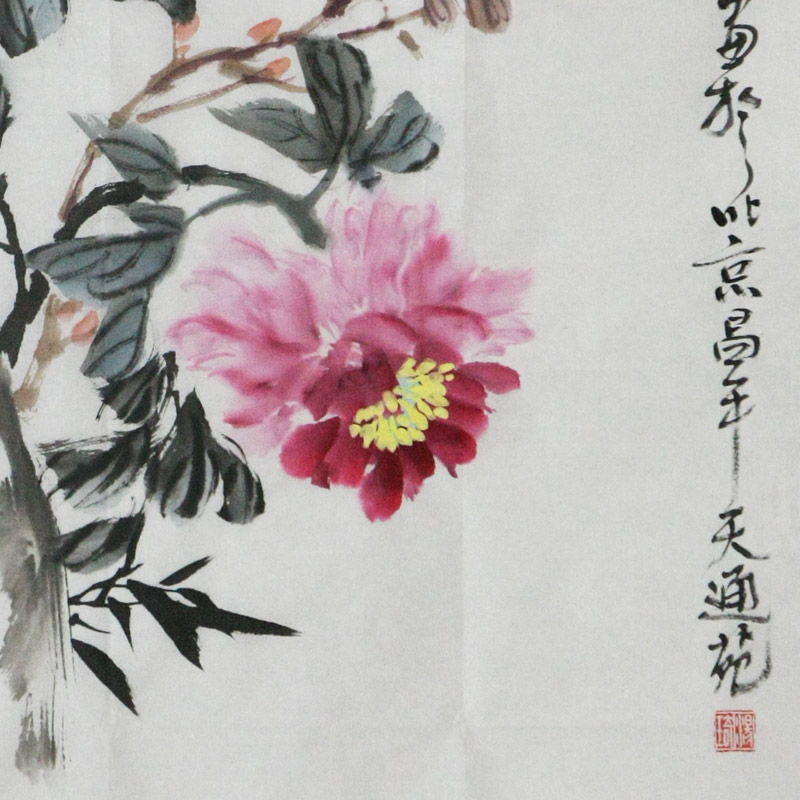 畫於北京昌平天通苑